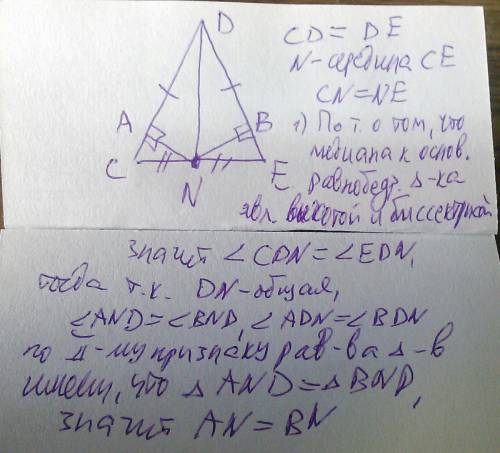 D
A
B
C
N
E
CD = DE
N - середина CE
CN = NE
1) По т. о том, что
медиана к основ.
равнобедр. Δ-ка
явл. высотой и биссектрисой
значит ∠CDN = ∠EDN,
тогда т.к. DN - общая,
∠AND = ∠BND, ∠ADN = ∠BDN
по признаку рав-ва Δ-в
имеем, что Δ AND = Δ BND,
значит AN = BN